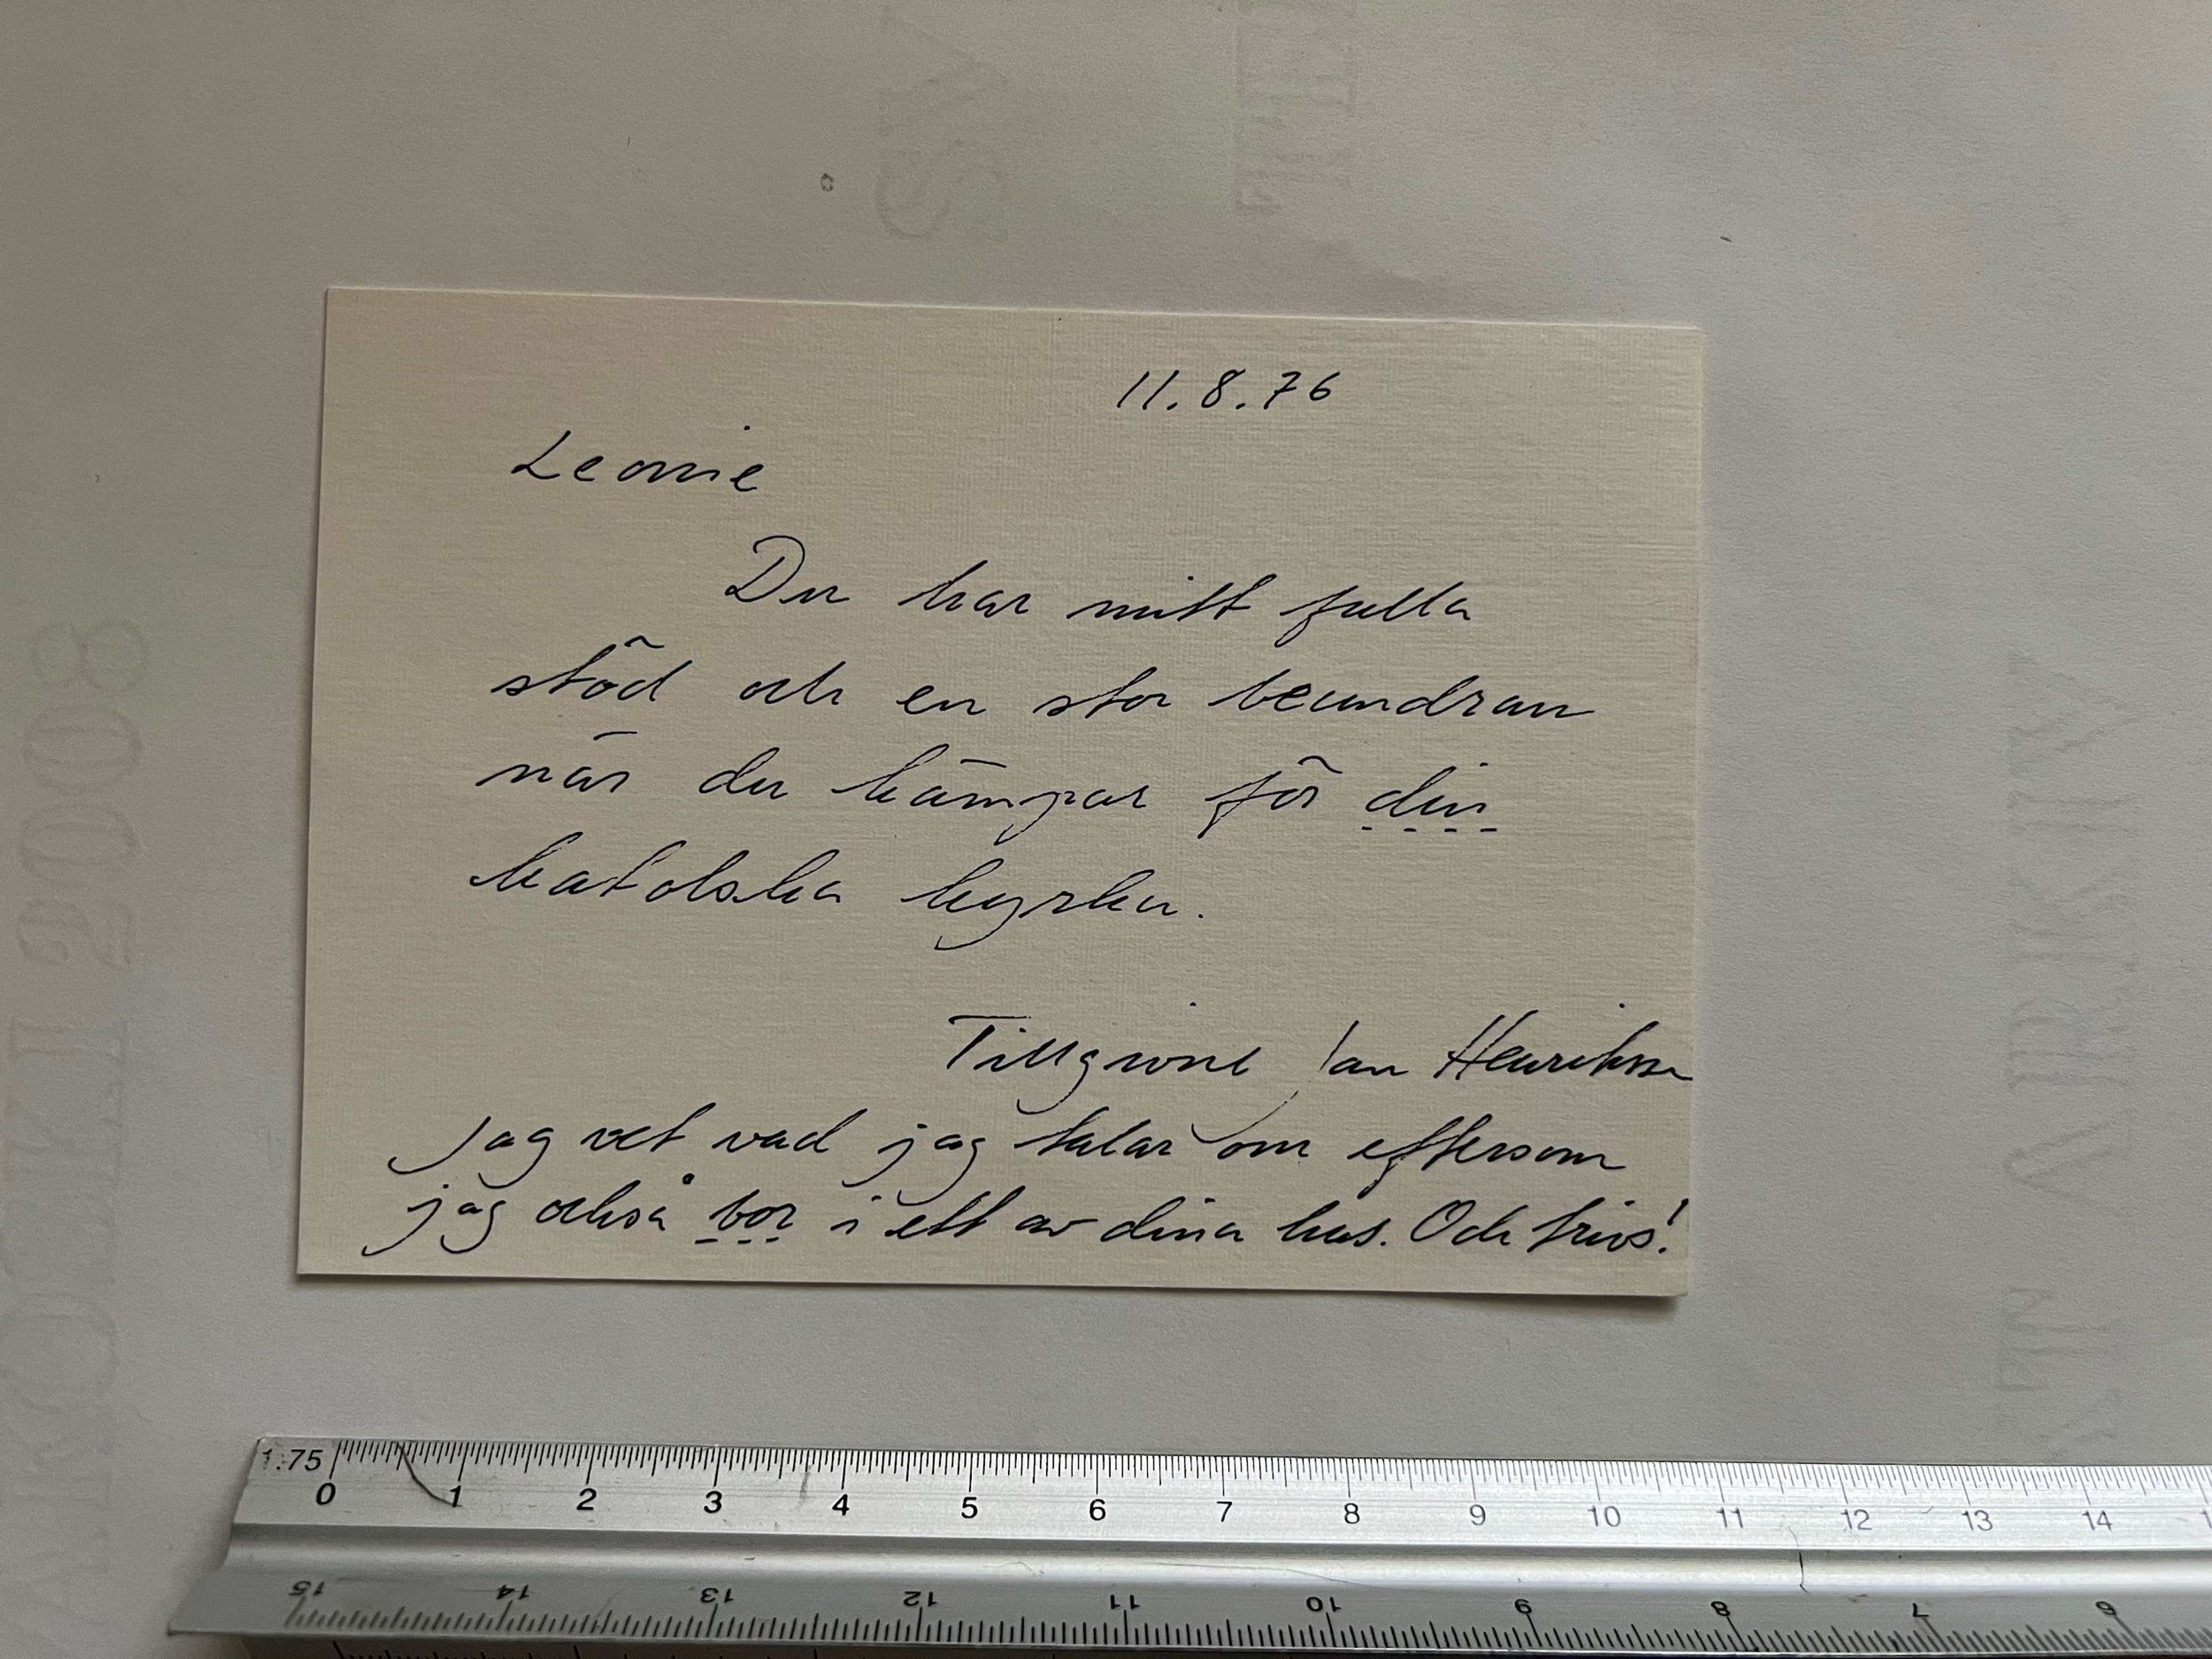 11.8.76
Leonie
Du har mitt fulla
stöd och en stor beundran
när du kämpar för din
katolska kyrka.
Tillgivne Jan Henriksson
Jag vet vad jag talar om eftersom
jag också bor i ett av dina hus. Och trivs!
1:75
0 1 2 3 4 5 6 7 8 9 10 11 12 13 14
15 14 13 12 11 10 9 8 7 6